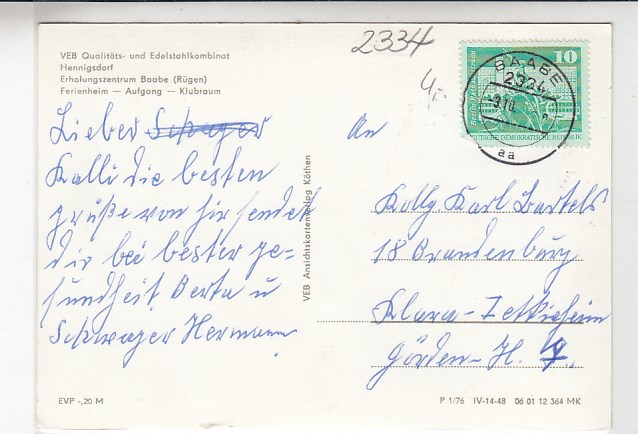 2334
4,-
VEB Qualitäts- und Edelstahlkombinat
Hennigsdorf
Erholungszentrum Baabe (Rügen)
Ferienheim — Aufgang — Klubraum
10
BAABE
2334
-9.10
aa
DEUTSCHE DEMOKRATISCHE REPUBLIK
Lieber Schwager
Kalli die besten
grüße von hir sendet
dir bei bester ge=
sundheit Berta u
Schwager Hermann
VEB Ansichtskartenverlag Köthen
An
Kolly Karl Bartels
18 Brandenburg
Klara-Zetkinheim
Görden-H. 7.
EVP -,20 M
P 1/76 IV-14-48 06 01 12 364 MK